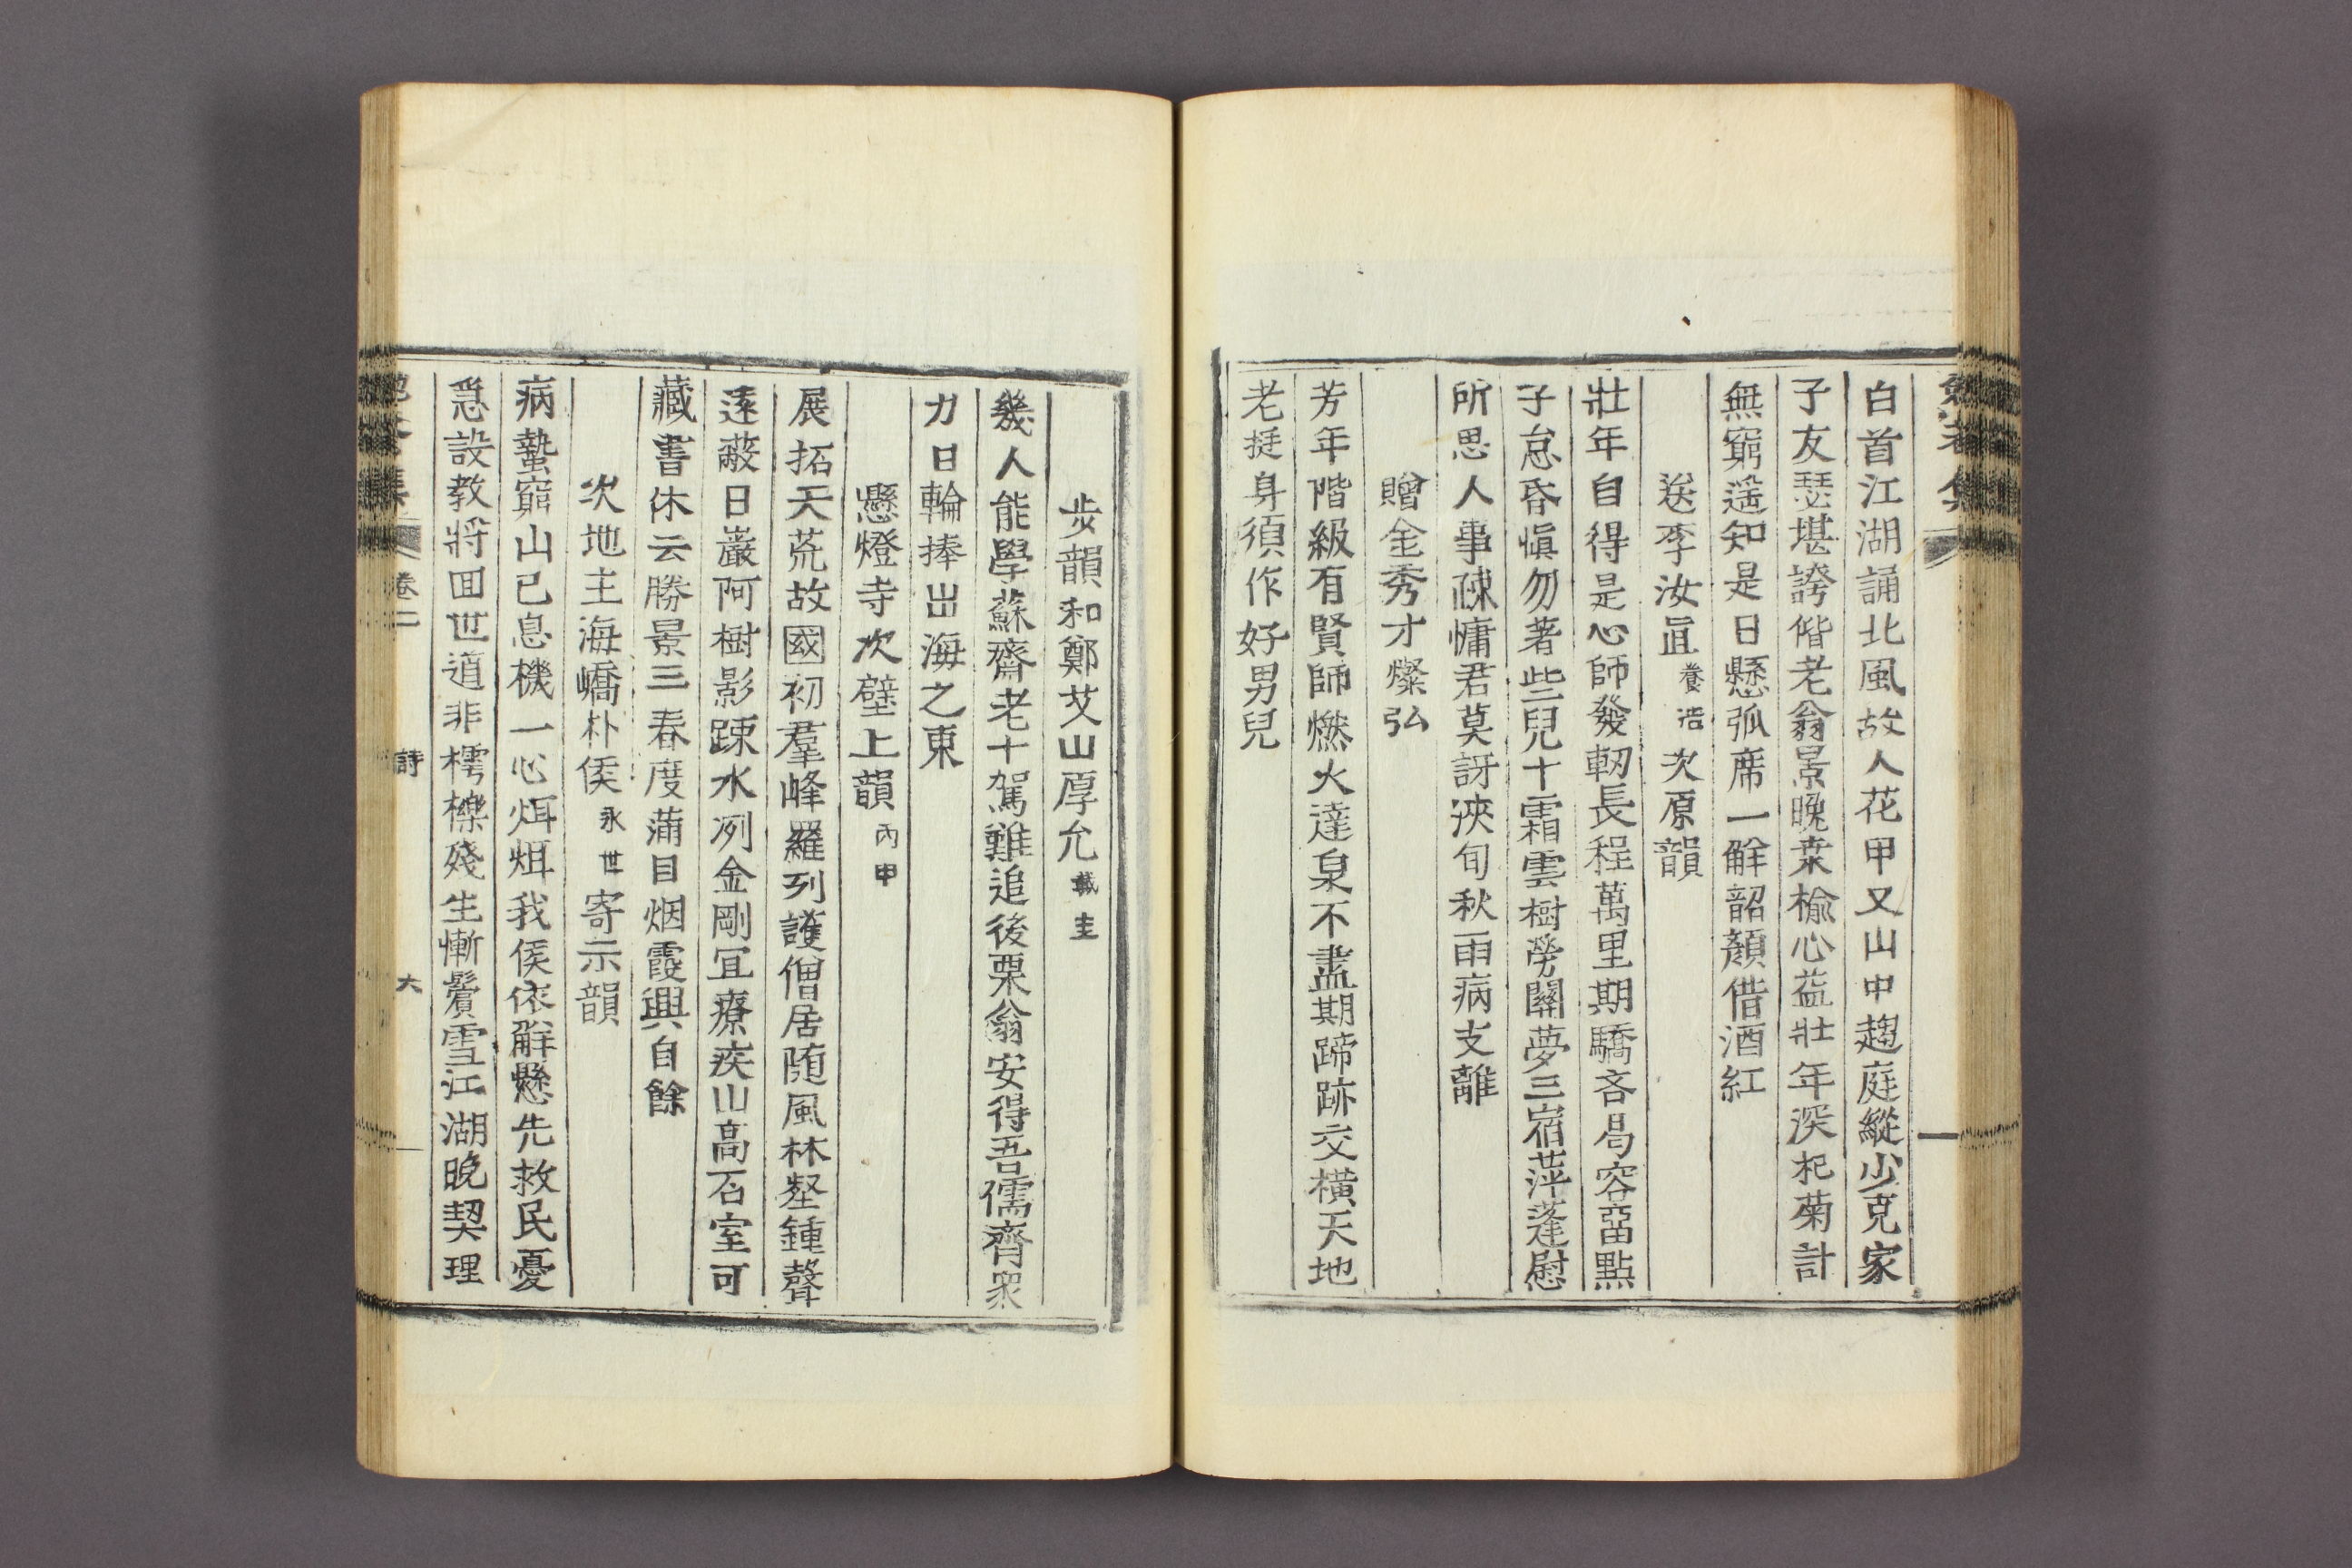 白首江湖誦北風故人花甲又山中趨庭縱少克家
子友瑟堪誇偕老翁景晚桒榆心益壯年深杞菊計
無窮遥知是日懸弧席一觧韶顏借酒紅
送李汝眞養浩次原韻
壯年自得是心師發軔長程萬里期驕吝局容啚點
子怠昏愼勿著些兒十霜雲樹勞關夢三宿萍蓬慰
所思人事疎慵君莫訝浹旬秋雨病支離
贈金秀才燦弘
芳年階級有賢師燃火達泉不盡期蹄跡交橫天地
老挺身須作好男兒
步韻和鄭艾山厚允載圭
幾人能學蘇齋老十駕難追後栗翁安得吾儒齊衆
力日輪捧出海之東
懸燈寺次壁上韻丙申
展拓天荒故國初羣峰羅列護僧居随風林壑鍾聲
遠蔽日巖阿樹影踈水冽金剛冝療疾山高石室可
藏書休云勝景三春度滿目烟霞興自餘
次地主海嶠朴侯永世寄示韻
病蟄窮山已息機一心炯炯我侯依觧懸先救民憂
急設教將回世道非樗櫟殘生慚鬢雪江湖晚契理
卷二
詩
六